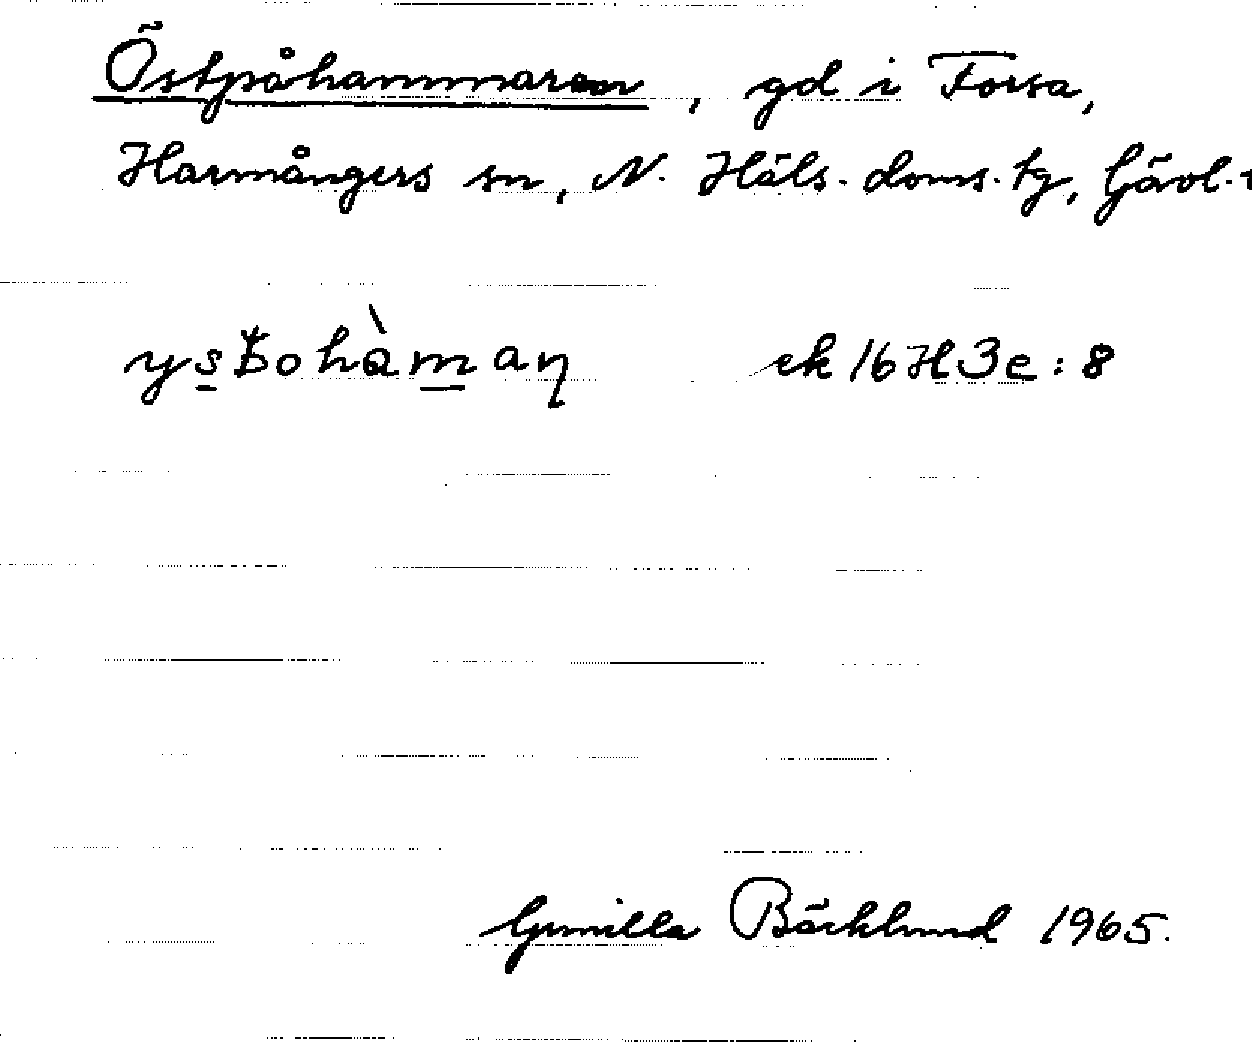 Östpåhammaren, gd i Forsa,
Harmångers sn, N. Häls. doms. tg, Gävl.
ek 16H3e:8
Gunilla Bäcklund 1965.